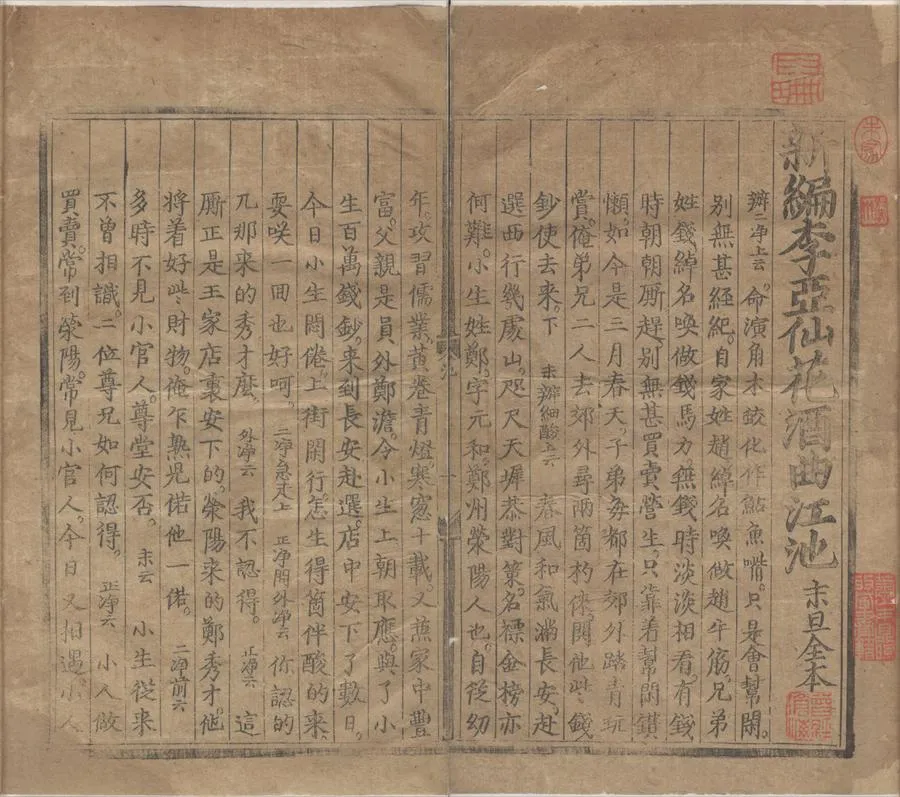 新編李亞仙花酒曲江池 末旦全本
辦二净上云 命演角木蛟化作鮎魚嘴。只是會幫閑。
别無甚經紀。自家姓趙綽名喚做趙牛筋。兄弟
姓錢綽名喚做錢馬力無錢時淡淡相看。有錢
時朝朝厮趕。别無甚買賣營生。只靠着幫閑鑽
懶。如今是三月春天。子弟每都在郊外踏青玩
賞。俺弟兄二人去郊外尋兩箇杓俫。閑他些錢
鈔使去來。下 末辦細酸上云 春風和氣滿長安。赴
選西行幾處山。咫尺天墀恭對策。名標金榜亦
何難。小生姓鄭。字元和。鄭州滎陽人也。自從幼
年。攻習儒業。黄卷青燈。寒窻十載。又兼家中豐
富。父親是員外鄭澹。令小生上朝取應。與了小
生百萬錢鈔。來到長安赴選。店中安下了數日。
今日小生悶倦。上街閑行。怎生得箇伴酸的來
耍咲一回也好呵。 二净急走上 正净問外净云 你認的
兀那来的秀才麽。 外净云 我不認得。 正净云 這
厮正是王家店裏安下的。滎陽来的鄭秀才。他
將着好些財物。俺乍熟兒偌他一偌。 二净前云
多時不見小官人。尊堂安否。 末云 小生從来
不曾相識。二位尊兄如何認得。 正净云 小人做
買賣。常到滎陽。常見小官人。今日又相遇。小人
池